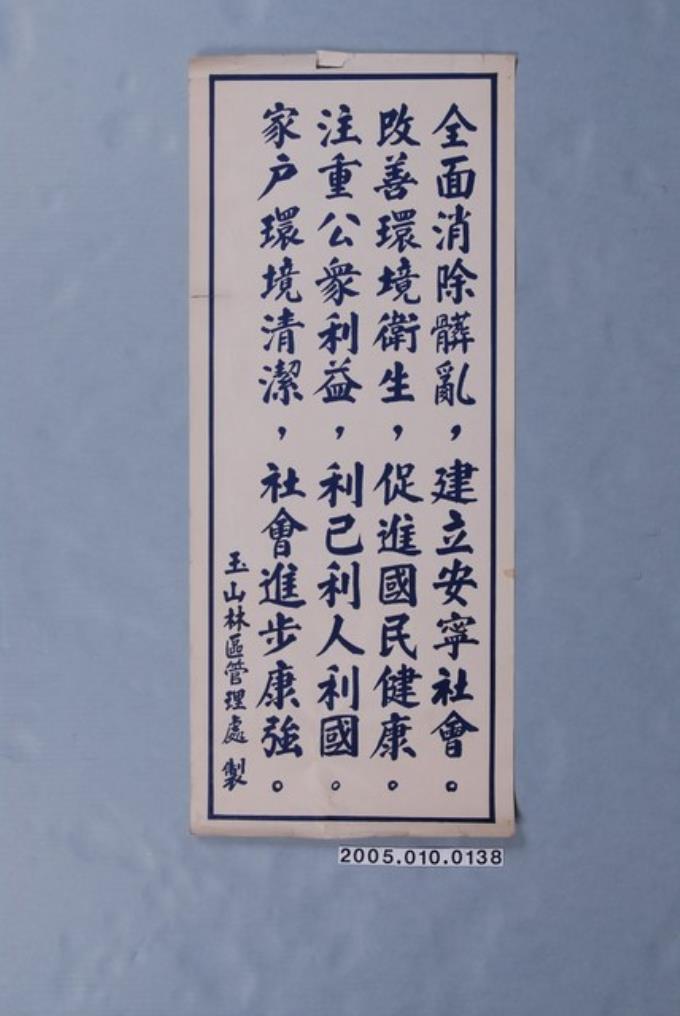 全面消除髒亂，建立安寧社會。
改善環境衛生，促進國民健康。
注重公衆利益，利己利人利國。
家戶環境清潔，社會進步康強。
玉山林區管理處 製
2005.010.0138